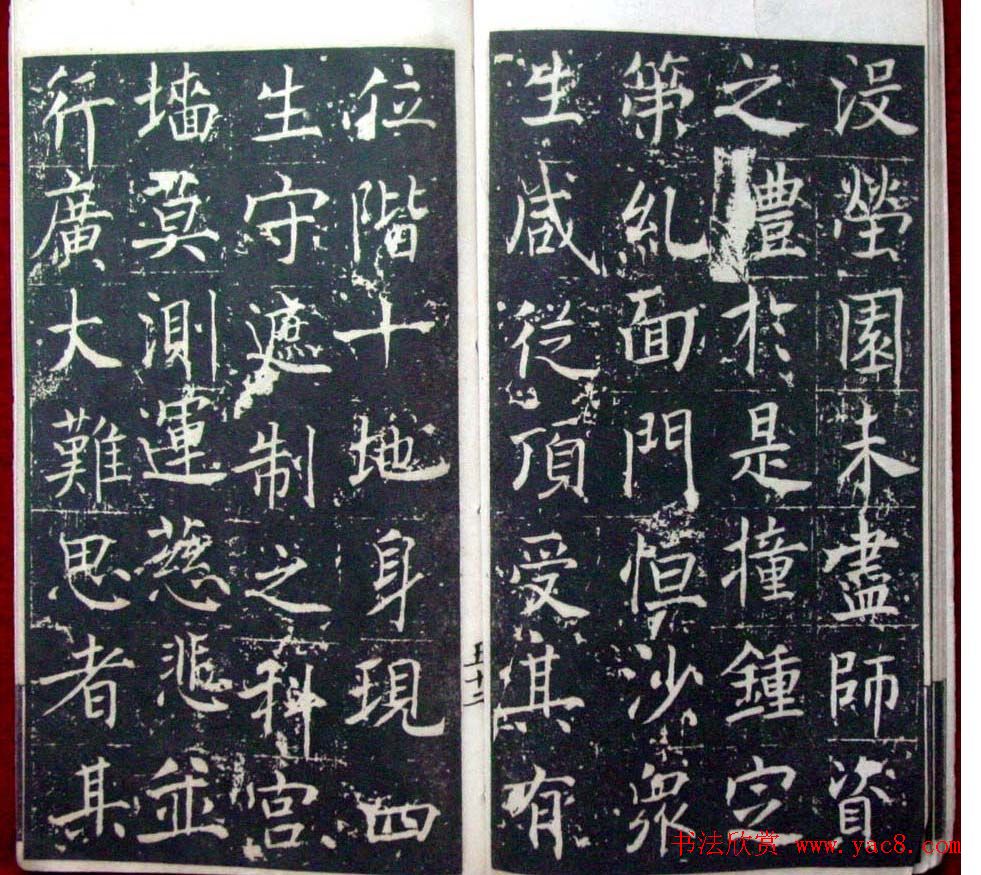 没塋園未盡師資
之禮於是撞鍾定
第糺面門恒沙衆
生咸從頂受其有
位階十地身現四
生守遮制之科宮
墻莫測運慈悲並
行廣大難思者其
书法欣赏 www.yac8.com